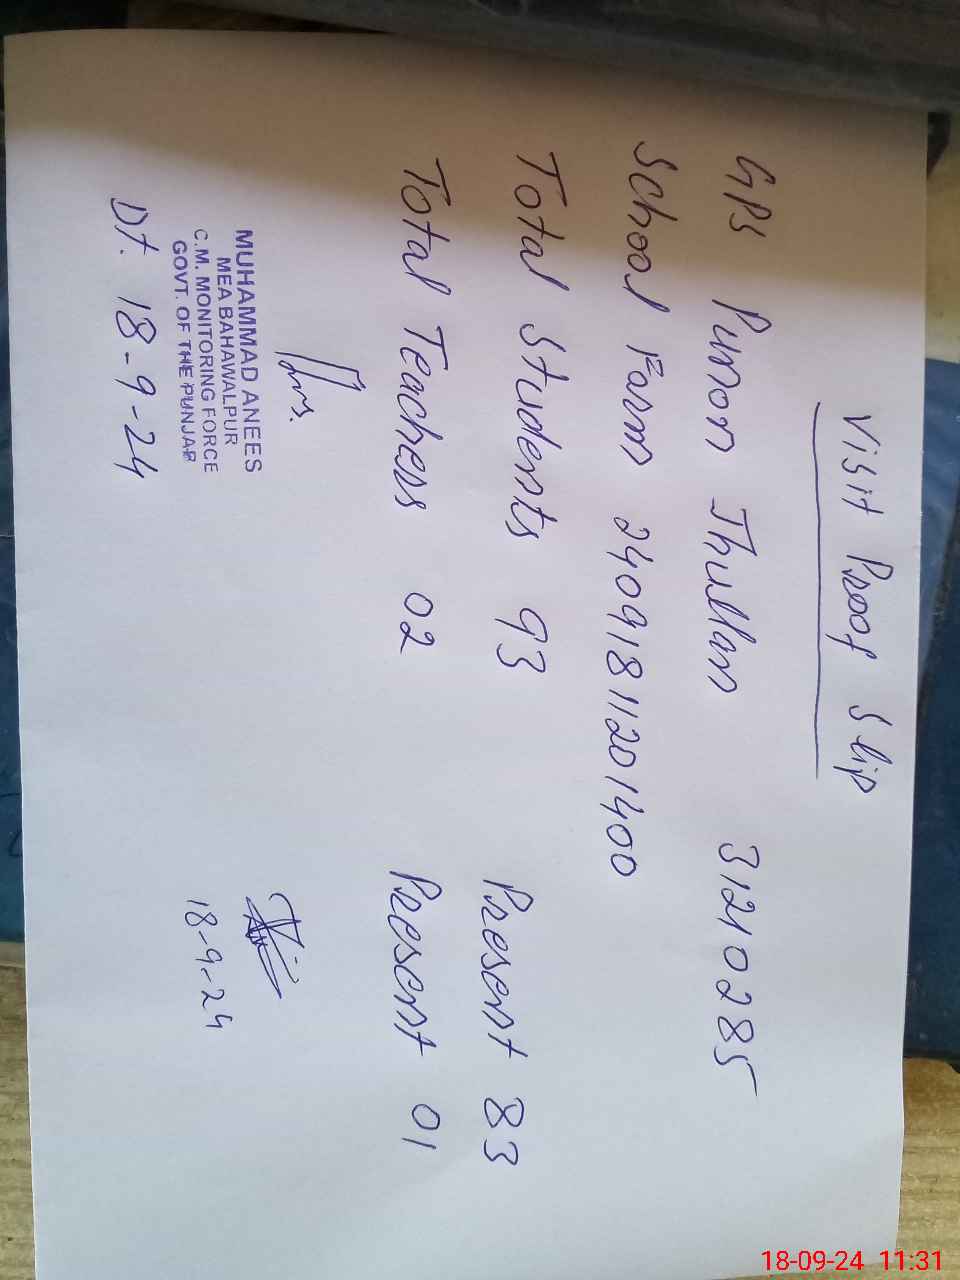 Visit Proof Slip
GPS Punon Thullan 31210285
School Farm 2409181120 1400
Total Students 93 Present 83
Total Teachers 02 Present 01
MUHAMMAD ANEES
MEA BAHAWALPUR
C.M. MONITORING FORCE
GOVT. OF THE PUNJAB
Dt. 18-9-24
18-9-24
18-09-24 11:31